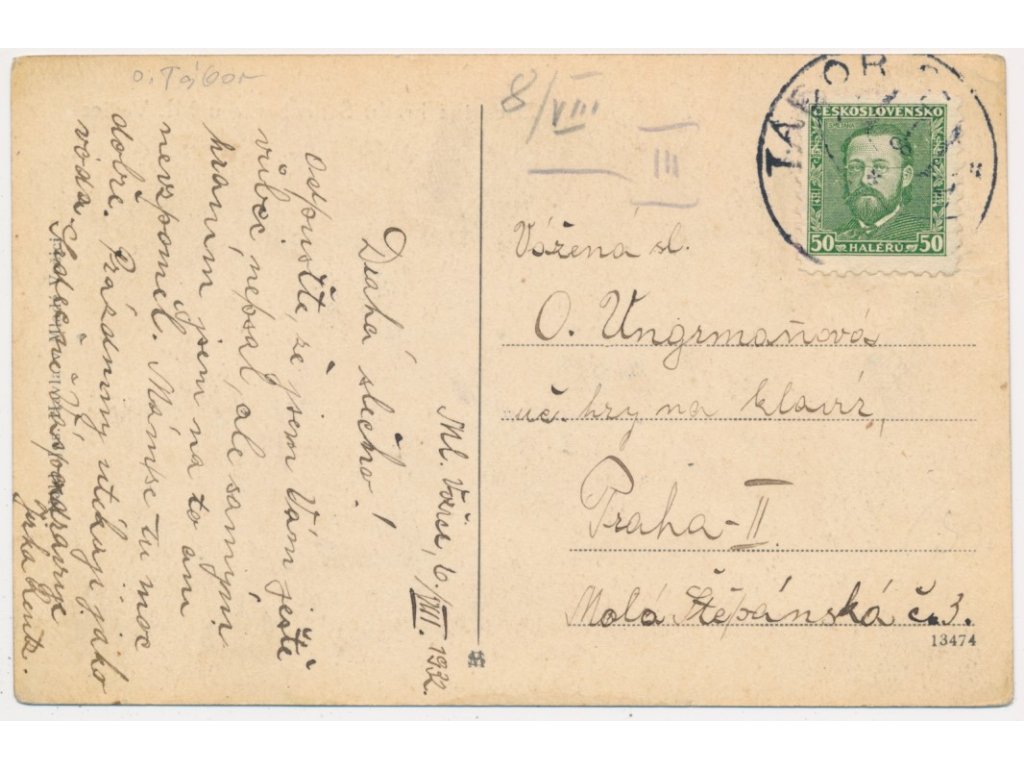 o. Tábor
8/VIII
III
TÁBOR
ČESKOSLOVENSKO
50 HALÉŘŮ 50
Ml. Vožice, 6./VIII. 1932.
Drahá slečno!
Odpusťte, že jsem Vám ještě
vůbec nepsal, ale samým
hraním jsem na to ani
nevzpoměl. Mám se tu moc
dobře. Prázdniny utíkají jako
voda.
pozdravuje
Jirka
Vážená sl.
O. Ungrmaňová
uč. hry na klavír,
Praha-II.
Malá Štěpánská č. 3.
13474